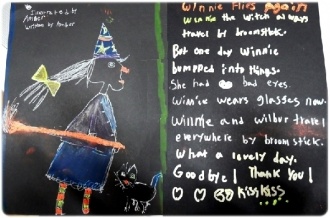 Illustrated by
Amber
written by Amber
Winnie Flies Again
Winnie the witch always
travel by broomstick.
But one day Winnie
bumpped into things.
She had bad eyes.
Winnie wears glasses now.
Winnie and wilbur travel
everywhere by broomstick.
What a lovely day.
Goodbye! Thank You!
Kiss Kiss